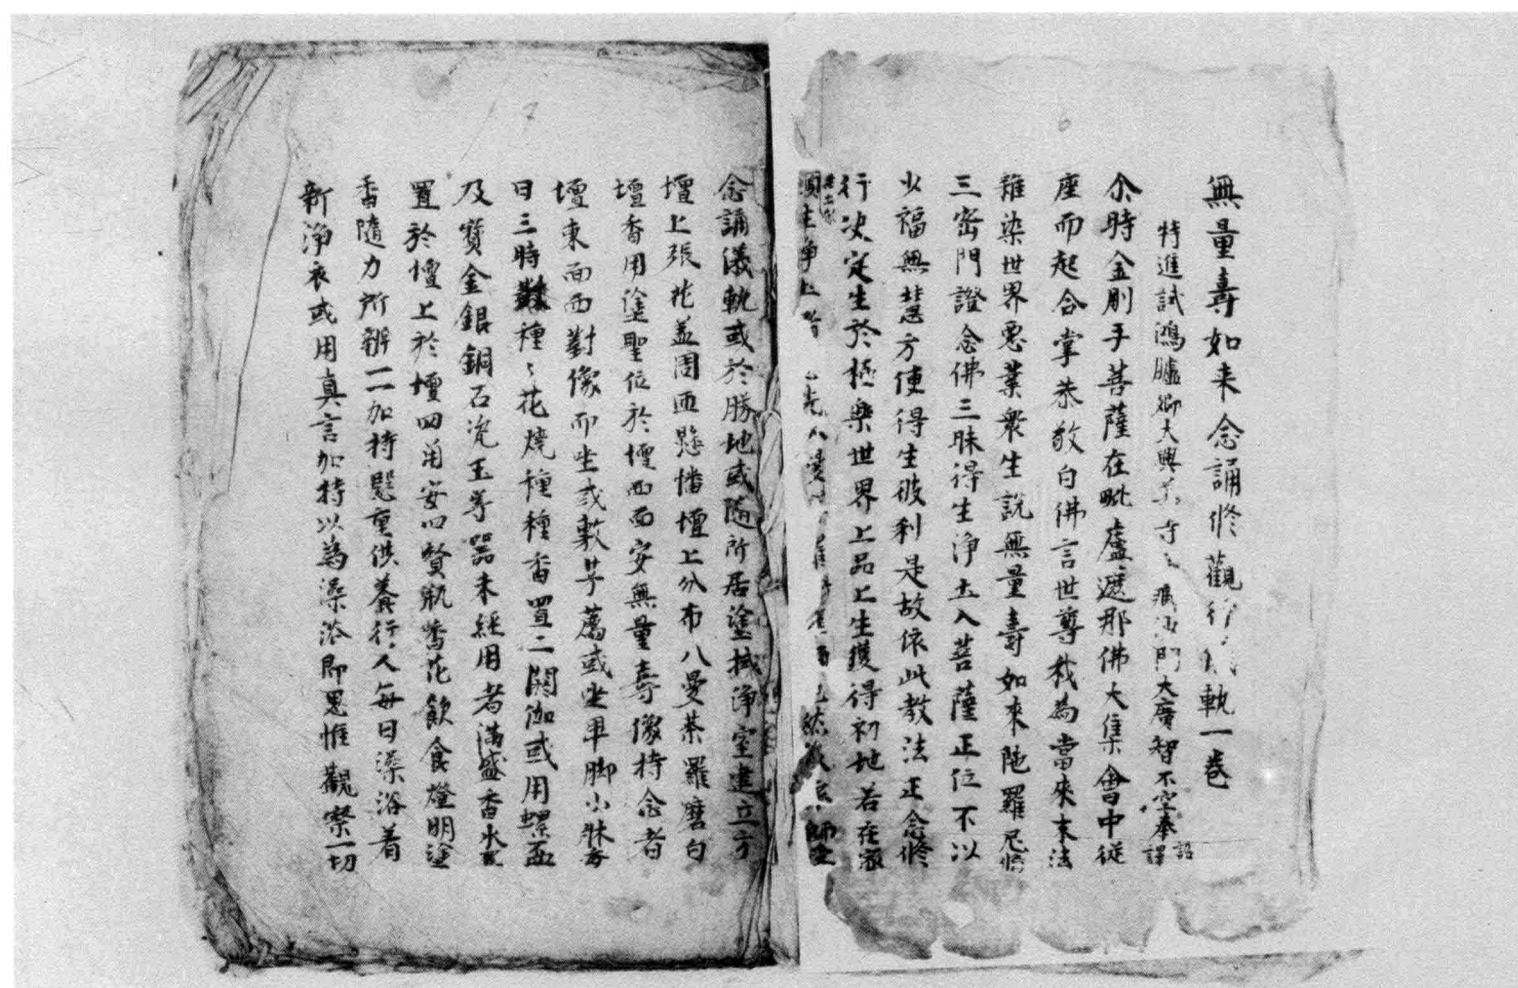 無量壽如来念誦修觀行儀軌一卷
特進試鴻臚卿大興善寺三藏沙門大廣智不空奉詔譯
尒時金剛手菩薩在毗盧遮那佛大集會中從
座而起合掌恭敬白佛言世尊我為當來末法
雜染世界惡業衆生說無量壽如來陁羅尼修
三密門證念佛三昧得生淨土入菩薩正位不以
少福無慧方便得生彼刹是故依此教法正念修
行决定生於極樂世界上品上生獲得初地若在家
願生淨土者 先入 然後 師
念誦儀軌或於勝地或隨所居塗拭淨室建立方
壇上張花盖周迊懸幡壇上分布八曼荼羅磨白
壇香用塗聖位於壇西面安無量壽像持念者
壇東面西對像而坐或敷茅薦或坐卑脚小牀每
日三時種〻花燒種種香置二閼伽或用螺盃
及寶金銀銅石瓷玉等器未經用者滿盛香水
置於壇上於壇四角安四賢瓶香花飲食燈明塗
香隨力所辦一一加持慇重供養行人每日澡浴着
新淨衣或用真言加持以為澡浴即思惟觀察一切